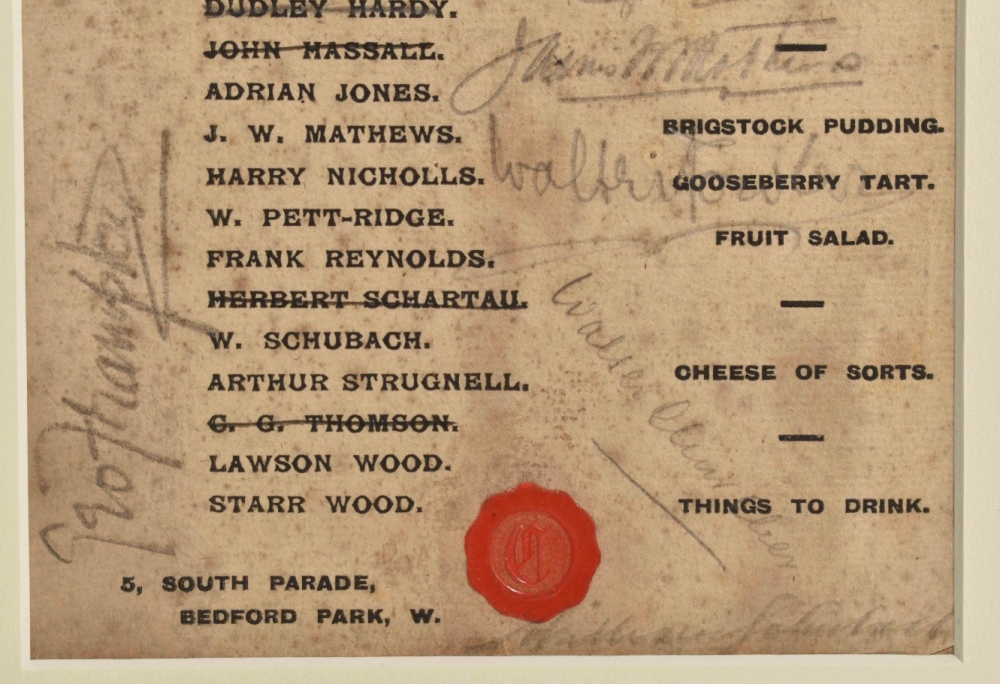 DUDLEY HARDY.
JOHN HASSALL.
ADRIAN JONES.
J. W. MATHEWS.
HARRY NICHOLLS.
W. PETT-RIDGE.
FRANK REYNOLDS.
HERBERT SCHARTAU.
W. SCHUBACH.
ARTHUR STRUGNELL.
C. G. THOMSON.
LAWSON WOOD.
STARR WOOD.
5, SOUTH PARADE,
BEDFORD PARK, W.
James W Mathews
BRIGSTOCK PUDDING.
GOOSEBERRY TART.
FRUIT SALAD.
CHEESE OF SORTS.
THINGS TO DRINK.
Walter
Walter
Schubach
C